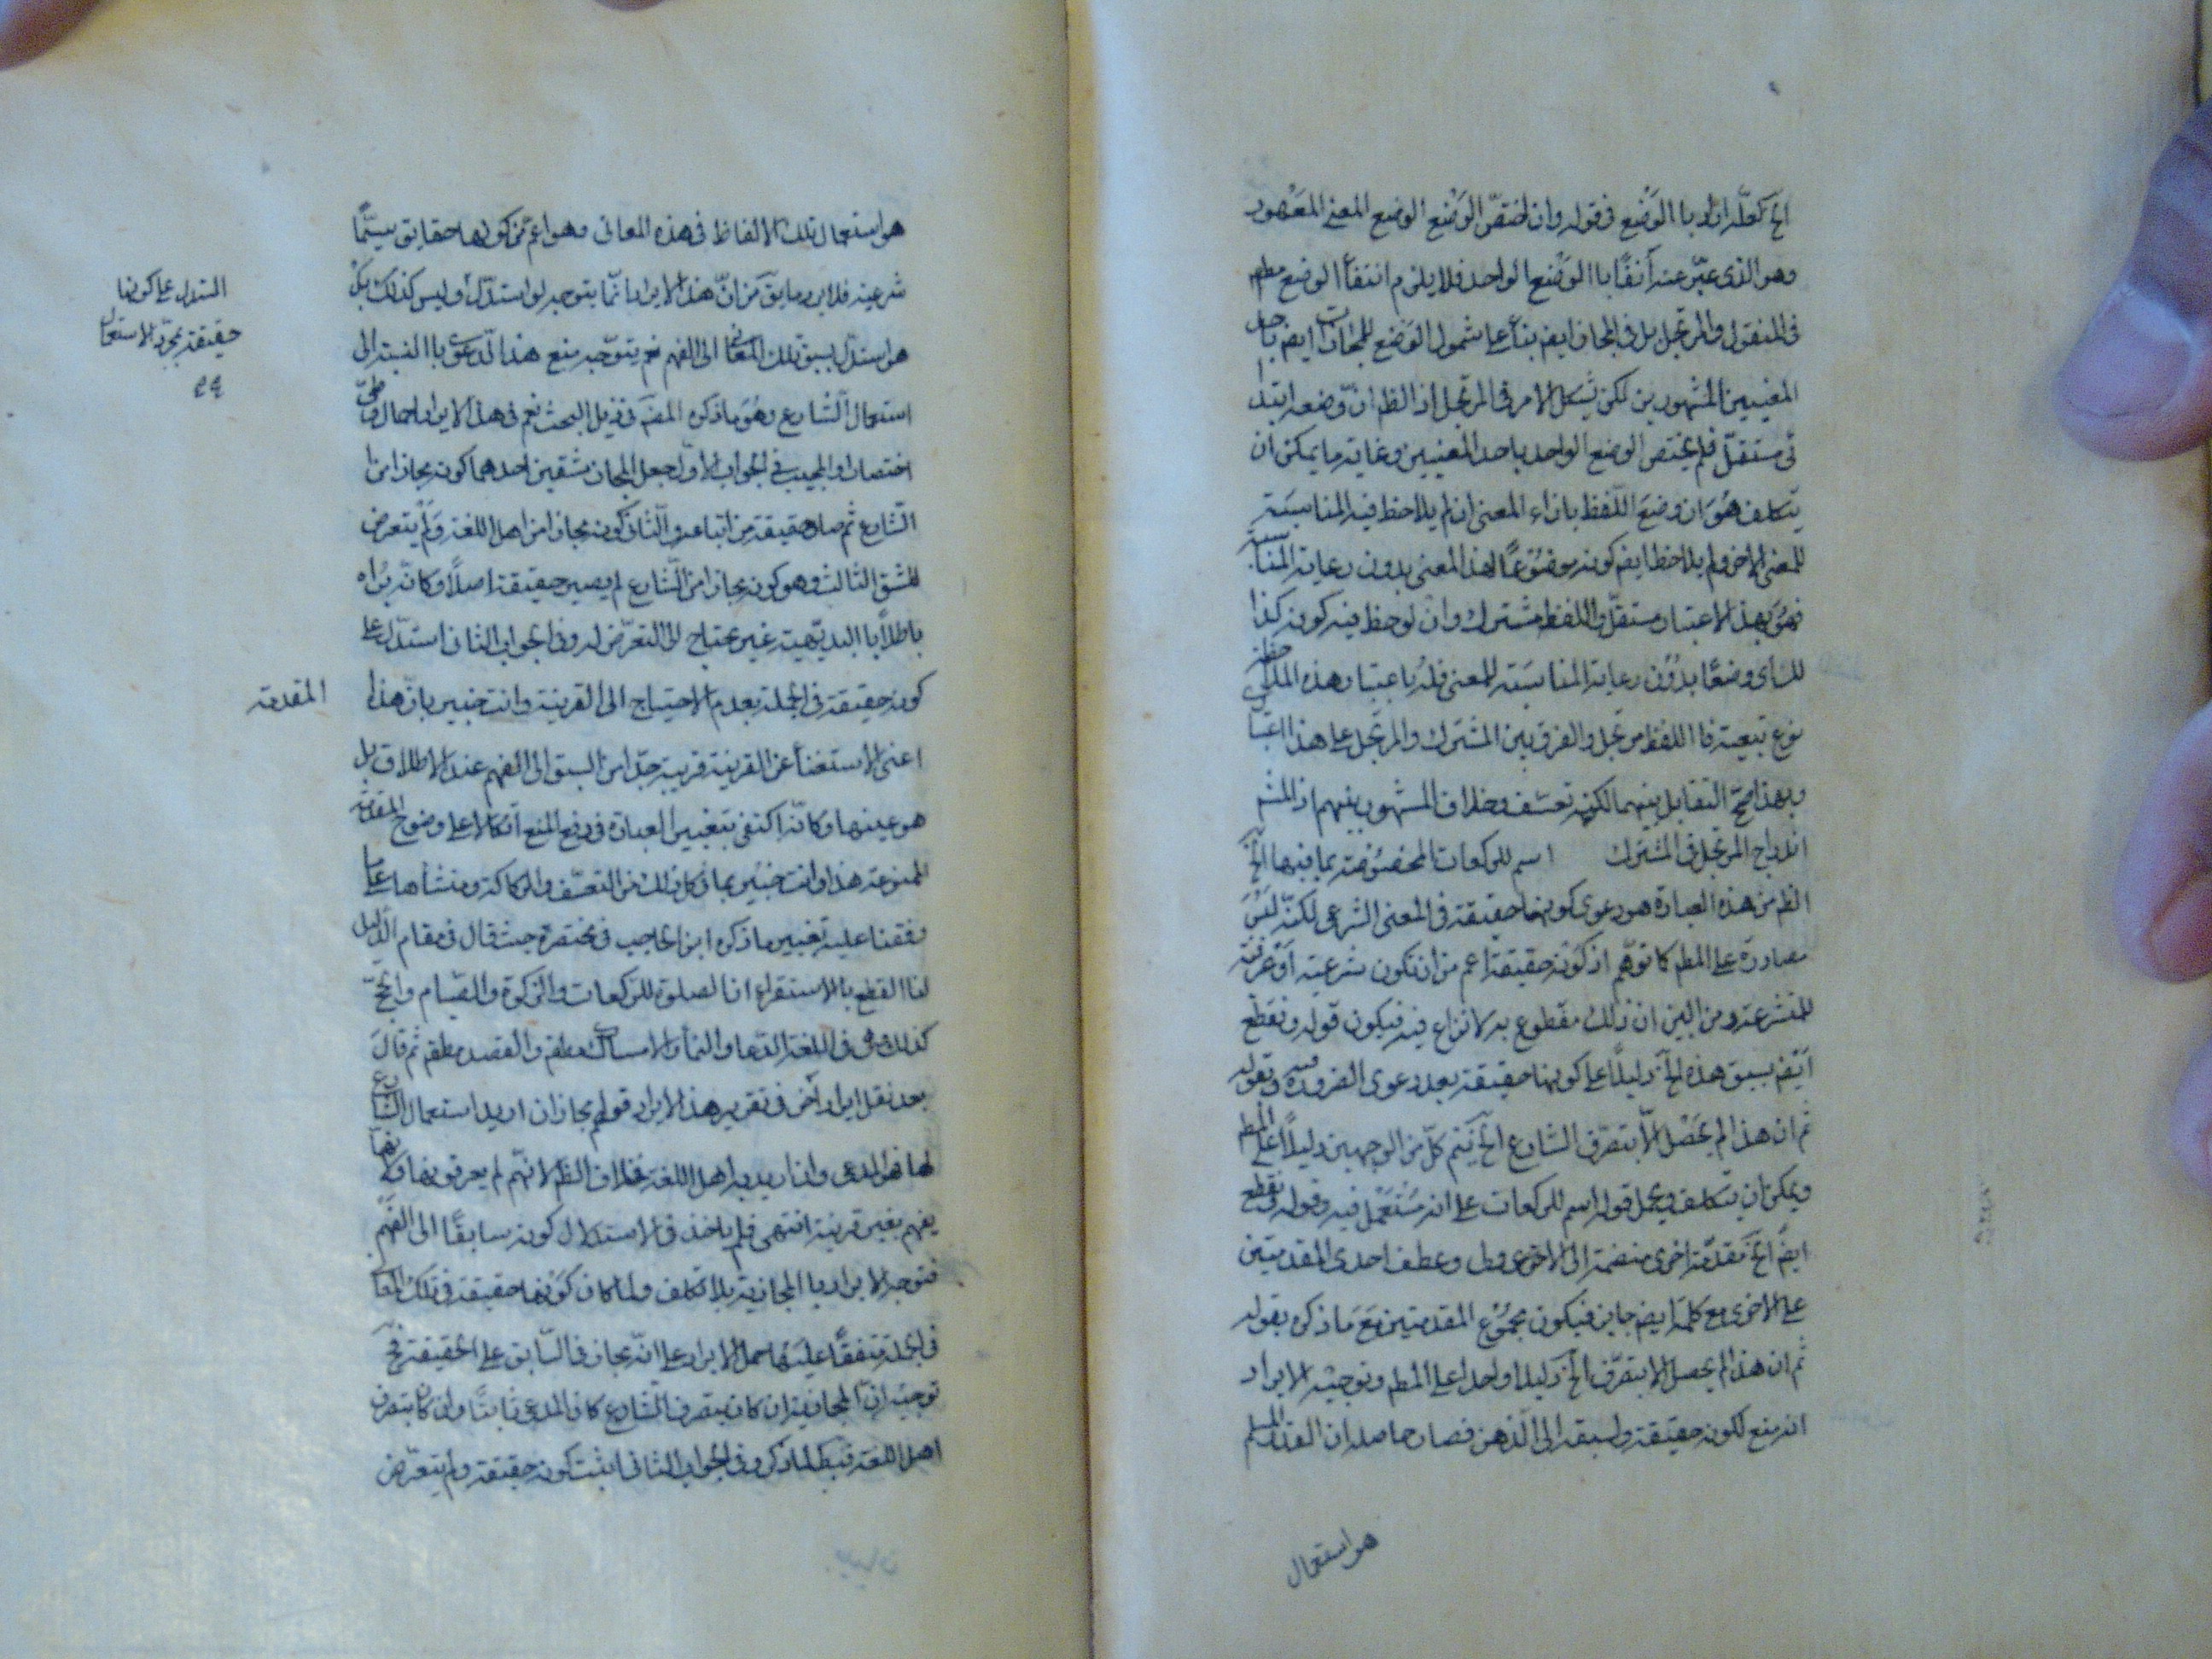 الخ لعله اراد با الوَضْع فى قوله وان اختصّ الوَضْع الوضع المعنى المعَهْود
وهو الذى عبّر عنه آنفًا با الوَضْع الواحد فلا يلزم انتفأ الوضع مطم
فى المنقول والمرتجل بل فى المجاز ايضم بنأ على شمول الوَضع للمجازات ايضم باحد
المعنيين المشهورين لكن يشكل الامر فى المرتجل اذ الظم انّ وضعه ابتدا
ئى مستقلّ فلم يختص الوضع الواحد باحد المعنيين وغاية ما يمكن ان
يتكلف هُوَ ان وضعَ اللّفظ بازاء المعنى ان لم يلاحظ فيه المناسبَة
للمعنى الاخر ولم يلاحظ ايضم كونه موضوعًا لهذا المعنى بدون رعاية المناسبة
فهُوَ بهذا الاعتبار مستقلّ واللفظ مشترك وانْ لوحظ فيه كونه كذا
للثانى وضعًا بدُوْن رعاية المناسَبَة للمعنى فلهُ باعتبار هذه الملاحظة
نوع تبعية فا اللفظ مرتجل والفرق بين المشترك والمرتجل على هذا اعتبارى
وبهذا صحّ التقابل بينهما لكنه تعسّف وخلاف المشهور بينهم اذ المشم
اندراج المرتجل فى المشترك اسم للركعات المخصُوْصَة بما فيها الخ
الظم من هذه العبارة هو دعوى كونها حقيقة فى المعنى الشرعى لكنّه ليْسَ
مصادرة على المطم كما توهّم اذ كوْنه حقيقة اعم من ان تكون شرعية اَوْ عُرْفية
للمتشرعة ومن البين ان ذلك مقطوع به لا نزاع فيه فيكون قوله ونقطع
ايضم بسبق هذه الخ دليلًا على كونها حقيقة بعد دعوى الضرورة فيه وبقوله
ثم ان هذا لم يحصْل الاّ بتصرّف الشارع الخ يَتم كلّ من الوجهين دليلًا على المطم
ويمكن ان يتكلف ويحمل قوله اسم للركعات على انه مُسْتَعْمل فيه وقوله ونقطع
ايضًم الخ مَقدّمة اخرى منضمة الى الاخرى وعطف احدى المقدمتين
على الاخرى مع كلمة ايضم جايز فيكون مجمُوع المقدمتين مَعَ ما ذكره بقوله
ثم ان هذا لم يحصل الا بتصرّف الخ دَليلًا واحدًا على المطم وتوجيْه الايراد
انه منع لكونه حقيقة ولسبقه الى الذهن فصار حاصله ان القدر المسلم
هو استعمال
هو استعمال تلك الالفاظ فى هذه المعانى وهو اعم من كونها حقايق سيّما
شرعية فلا يرد ما يقَ من انّ هذا الايراد انّما يتوجه لو استدلّ وليس كذلك بَلْ
المستدل على كونها
حقيقة بمجرّد الاستعمال
هو استدلّ بسبق تلك المعانى الى الفهم نعم يتوّجه منع هذا الدّعوى با النسبة الى
استعمال الشارع وهُوَ ما ذكره المصَم فى ذيل البحث نعم فى هذا الايراد اجمال
اختصار والمجيب فى الجواب الاوّل جعل المجاز شقين احدهما كونه مجازا من
الشّارع ثم صار حقيقة من اتباعه والثّانى كونه مجازا من اهل اللغة وَلَمْ يتعرض
للشق الثالث وهو كونه مجازا من الشارع لم يصير حقيقة اصلًا وكانّه يرُاه
باطلًا با البديهية غير محتاج الى التعرّض له وفى الجواب الثانى استدّل على
كونه حقيقة فى الجملة بعدم الاحتياج الى القرينة وانت خبير بانّ هذا المقدمة
اعنى الاستغنأ عن القرينة قريبة جدّا من السبق الى الفهم عند الاطلاق بل
هو عينها وكانّه اكتفى بتغيير العبارة فى دفع المنع اتّكالا على وضوح المقدمة
الممنوعة هذا وانت خبير بما فى كل ذلك من التعسّف والركاكة ومنشأها على ما
وقفنا عليه تغيير ما ذكره ابن الحاجب فى مختصره حيث قال فى مقام الدّليل
لنا القطع بالاستقراء ان الصلوة للركعات والزكوة والصّيام والحجّ
كذلك وهى فى اللغة الدّعا والنمأ والامساك مطم والقصد مطم ثم قالَ
بعد نقل ايراد آخر فى تقرير هذا الايراد قولهم مجاز ان اريد استعمال الشارع
لها فهو المدعى وان اريد به اهل اللغة فخلاف الظم لانهم لم يعرفوها ولانها
يفهم بغير قرينة انتهى فلم ياخذ فى الاستدلال كونه سابقًا الى الفَهْم
فتوجه الايراد با المجازية بلا تكلف ولما كان كَوْنها حقيقة فى تلك المعا
فى الجملة متفقًا عليها حمل الايراد على انّه مجاز فى السّابق على الحقيقة فح
توجيْه انّ المجازيّة ان كان بتصرف الشارع كان المدعى ثابتًا وان كان بتصرف
اهل اللغة فيبطل لما ذكر وفى الجواب الثانى اثبت كونه حقيقة ولم يتعّرض